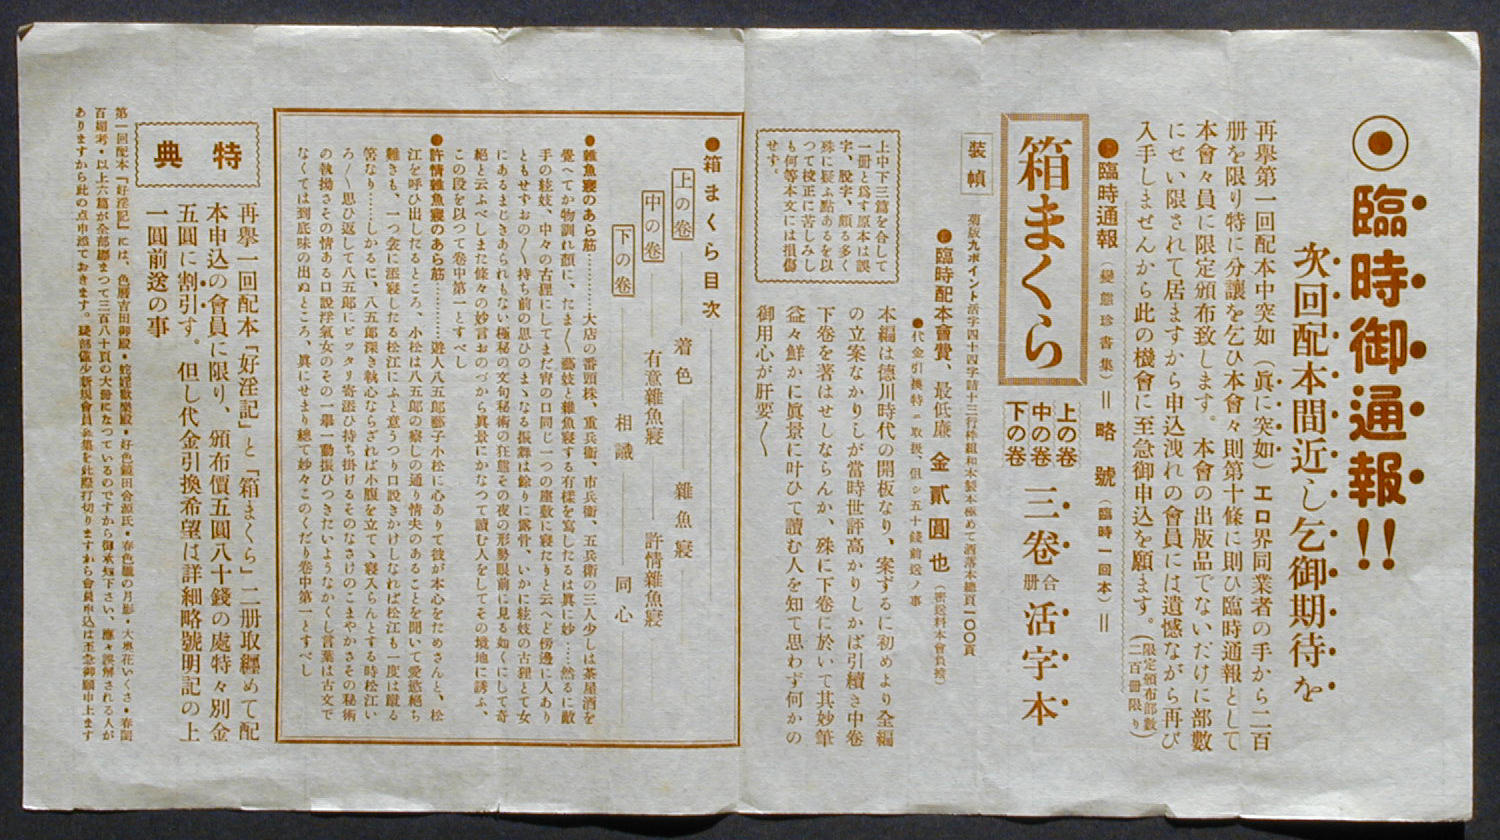 臨時御通報!!
次回配本間近し乞御期待を
再擧第一回配本中突如(眞に突如)エロ界同業者の手から二百
册を限り特に分讓を乞ひ本會々則第十條に則ひ臨時通報として
本會々員に限定頒布致します。本會の出版品でないだけに部數
にぜい限されて居ますから申込洩れの會員には遺憾ながら再び
入手しませんから此の機會に至急御申込を願ます。(限定頒布部數二百册限り)
●臨時通報(變態珍書集)=略號(臨時一回本)=
箱まくら
上の卷
中の卷
下の卷
三卷合册活字本
裝幀
菊版九ポイント活字四十四字詰十三行枠組和本製本極めて洒落本總頁一〇〇頁
●臨時配本會費、最低廉 金貳圓也(密送料本會負擔)
●代金引換特ニ取扱、但シ五十錢前送ノ事
上中下三篇を合して
一册と爲す原本は誤
字、脫字、頗る多く
殊に疑ふ點あるを以
つて校正に苦しみし
も何等本文には損傷
せず。
本編は德川時代の開板なり、案ずるに初めより全編
の立案なかりしが當時世評高かりしかば引續き中卷
下卷を著はせしならんか、殊に下卷に於いて其妙筆
益々鮮かに眞景に叶ひて讀む人を知て思わず何かの
御用心が肝要〱
●箱まくら目次
上の卷 着色 雜魚寢
中の卷 有意雜魚寢 許情雜魚寢
下の卷 相識 同心
●雜魚寢のあら筋………大店の番頭株、重兵衞、市兵衞、五兵衞の三人少しは茶屋酒を
疊へてか物訓れ顏に、たま〱藝妓と雜魚寢する有樣を寫したるは眞に妙……然るに敵
手の絃妓、中々の古狸にしてまだ宵の口同じ一つの座敷に寢たりと云へど傍邊に人あり
ともせずおの〱持ち前の思ひのまゝなる振舞は餘りに露骨、いかに絃妓の古狸とて女
にあるまじきあられもない極秘の文句秘術の狂態その夜の形勢眼前に見る如くにして奇
絕と云ふべしまた條々の妙言おのづから眞景にかなつて讀む人をしてその境地に誘ふ、
この段を以つて卷中第一とすべし
●許情雜魚寢のあら筋………遊人八五郎藝子小松に心ありて彼が本心をためさんと、松
江を呼び出したるところ、小松は八五郎の察しの通り情夫のあることを聞いて愛慾絕ち
難きも、一つ衾に添寢したる松江にふと意うつり口説きかけしなれば松江も一度は蹴る
筈なり……しかるに、八五郎深き執心ならざれば小腹を立てゝ寢入らんとする時松江い
ろ〱思ひ返して八五郎にピッタリ寄添ひ持ち掛けるそのなさけのこまやかさその秘術
の執拗さその情ある口説浮氣女のその一擧一動振ひつきたいようなかくし言葉は古文で
なくては到底味の出ぬところ、眞にせまり總て妙々このくだり卷中第一とすべし
特典
再擧一回配本『好淫記』と『箱まくら』二册取纒めて配
本申込の會員に限り、頒布價五圓八十錢の處特々別金
五圓に割引す。但し代金引換希望は詳細略號明記の上
一圓前送の事
第一回配本『好淫記』には、色曆吉田御殿・蛇淫歡樂殿・好色鏡田舍源氏・春色朧の月影・大奥花いくさ・春閨
百媚考・以上六篇が全部纒まつて三百八十頁の大册になつているのですから御承知下さい、應々誤解される人が
ありますから此の点申添ておきます。殘部僅少新規會員募集を此際打切りますから會員申込は至急御願申上ます